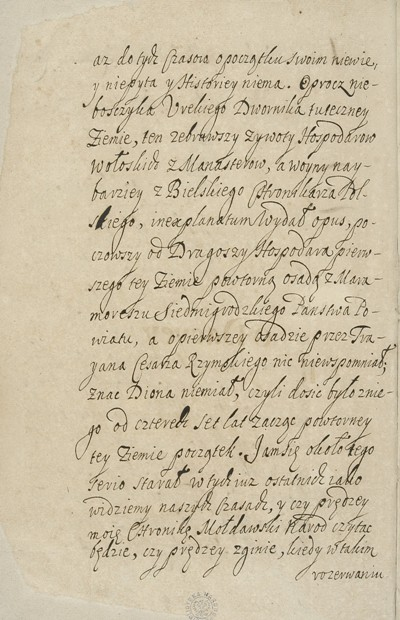 az do tych czasow o początku swoim niewie,
y niepyta y Historiey niema. Oprocz nie-
boszczyka Urekiego Dwornika tuteczney
Ziemie, ten zebrawszy zywoty Hospodarow
Wołoskich z Manasterow, a woyny nay-
barziey z Bielskiego Chronikarza Pol-
skiego, inexplanatum wydał opus, po-
czowszy od Dragoszy Hospodara pierw-
szego tey Ziemie powtorną osadą z Mara-
moreszu Siedmigrodzkiego Państwa Po-
wiatu, a o pierwszey osadzie przez Tra-
yana Cesarza Rzymskiego nic niewspomniał,
znac Diona niemiał, czyli dosic było znie-
go od czterech set lat zacząc powtorney
tey Ziemie początek. Jam się około tego
serio starał w tych iuz ostatnich iako
widziemy naszych czasach, y czy prędzey
moię Chronikę Mołdawski Narod czytac
będzie, czy prędzey zginie, kiedy w takim
rozerwaniu